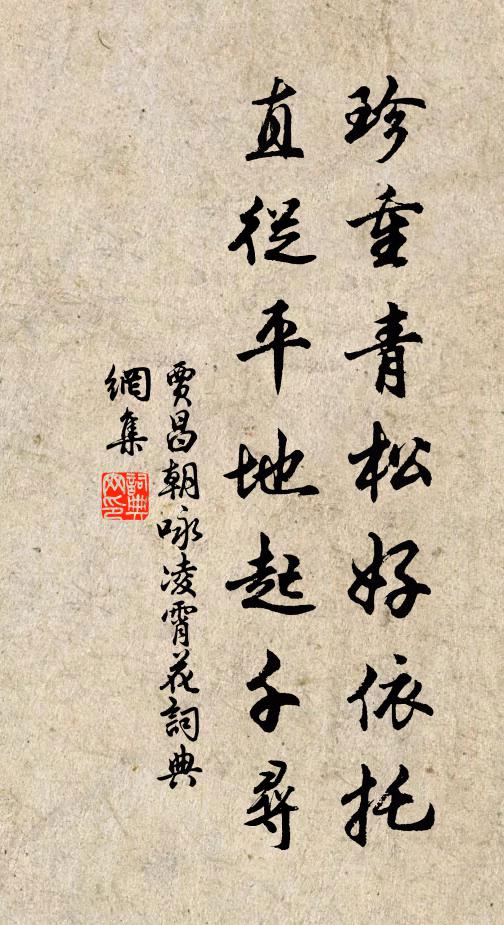 珍重青松好依托
直從平地起千尋
賈昌朝咏凌霄花詞典
網集
詞典網印